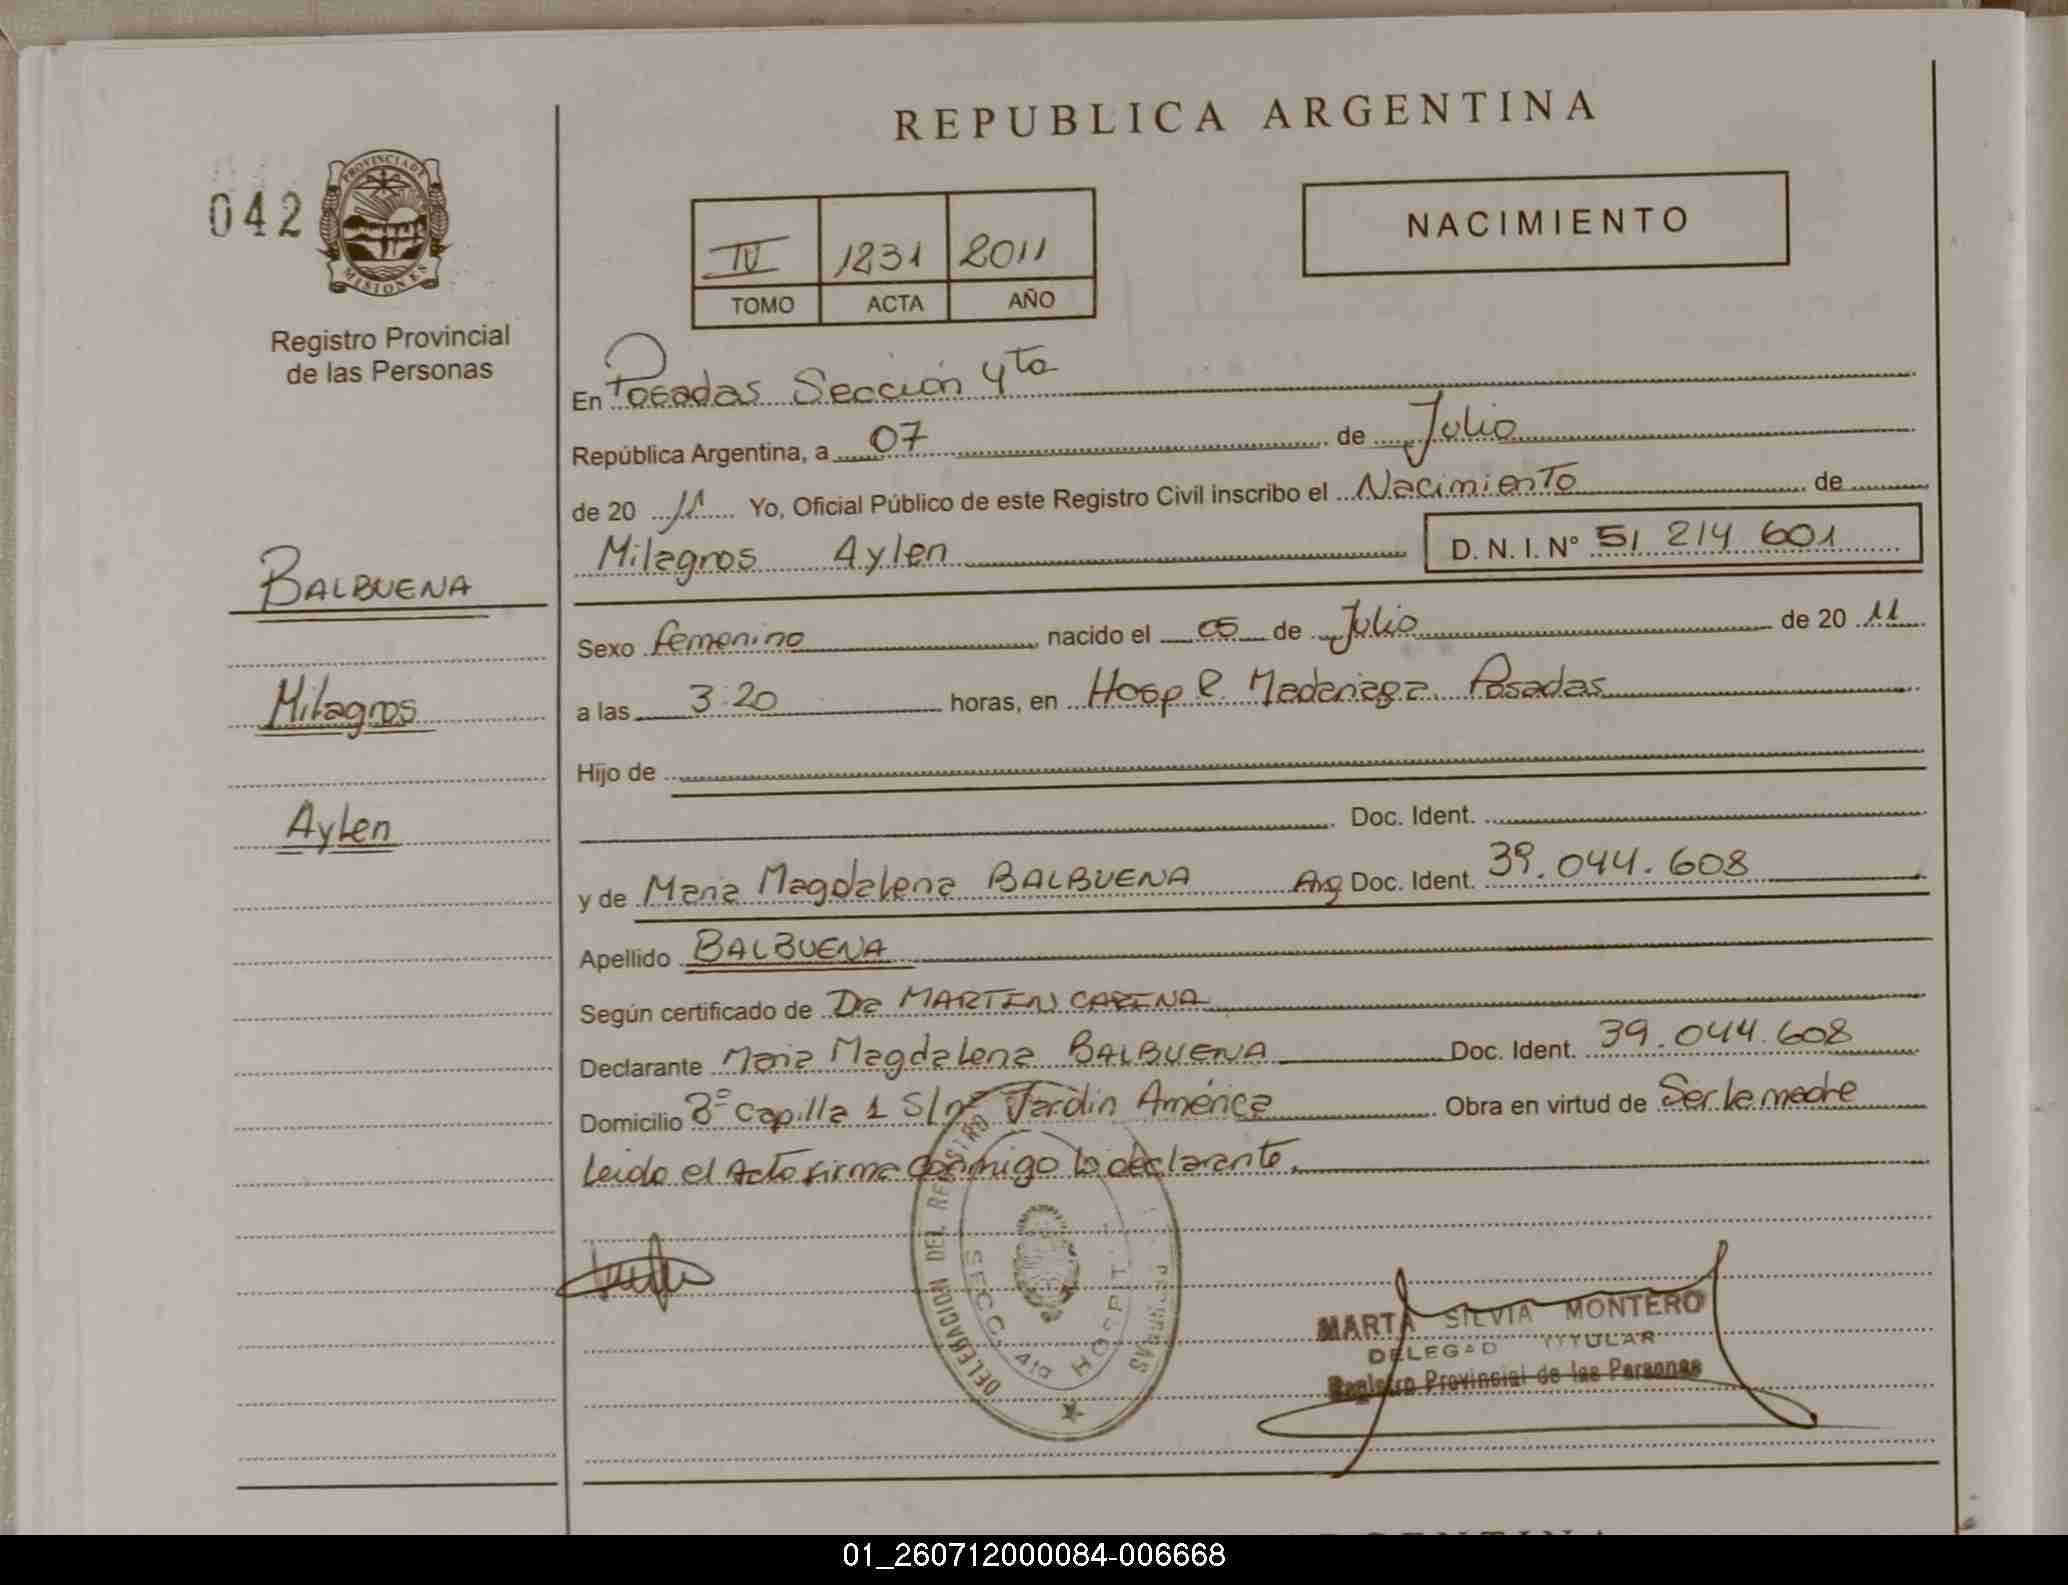 REPUBLICA ARGENTINA
042
PROVINCIA DE
MISIONES
Registro Provincial
de las Personas
IV 1231 2011
TOMO ACTA AÑO
NACIMIENTO
En Posadas Sección 4ta
República Argentina, a 07 de Julio
de 20 11 Yo, Oficial Público de este Registro Civil inscribo el Nacimiento de
Milagros Aylen D. N. I. N° 51 214 601
BALBUENA
Milagros
Aylen
Sexo femenino nacido el 05 de Julio de 20 11
a las 3:20 horas, en Hosp R. Madariaga Posadas
Hijo de
Doc. Ident.
y de Maria Magdalena BALBUENA Arg Doc. Ident. 39.044.608
Apellido BALBUENA
Según certificado de Da MARTIN CARINA
Declarante Maria Magdalena BALBUENA Doc. Ident. 39.044.608
Domicilio Bº Capilla 1 S/nº Jardín América Obra en virtud de Ser la madre
Leido el Acto firma conmigo la declarante.
DELEGACION DEL REGISTRO PERSONAS
SECC. 4ta HOSPIT.
MARTA SILVIA MONTERO
DELEGAD TITULAR
Registro Provincial de las Personas
01_260712000084-006668